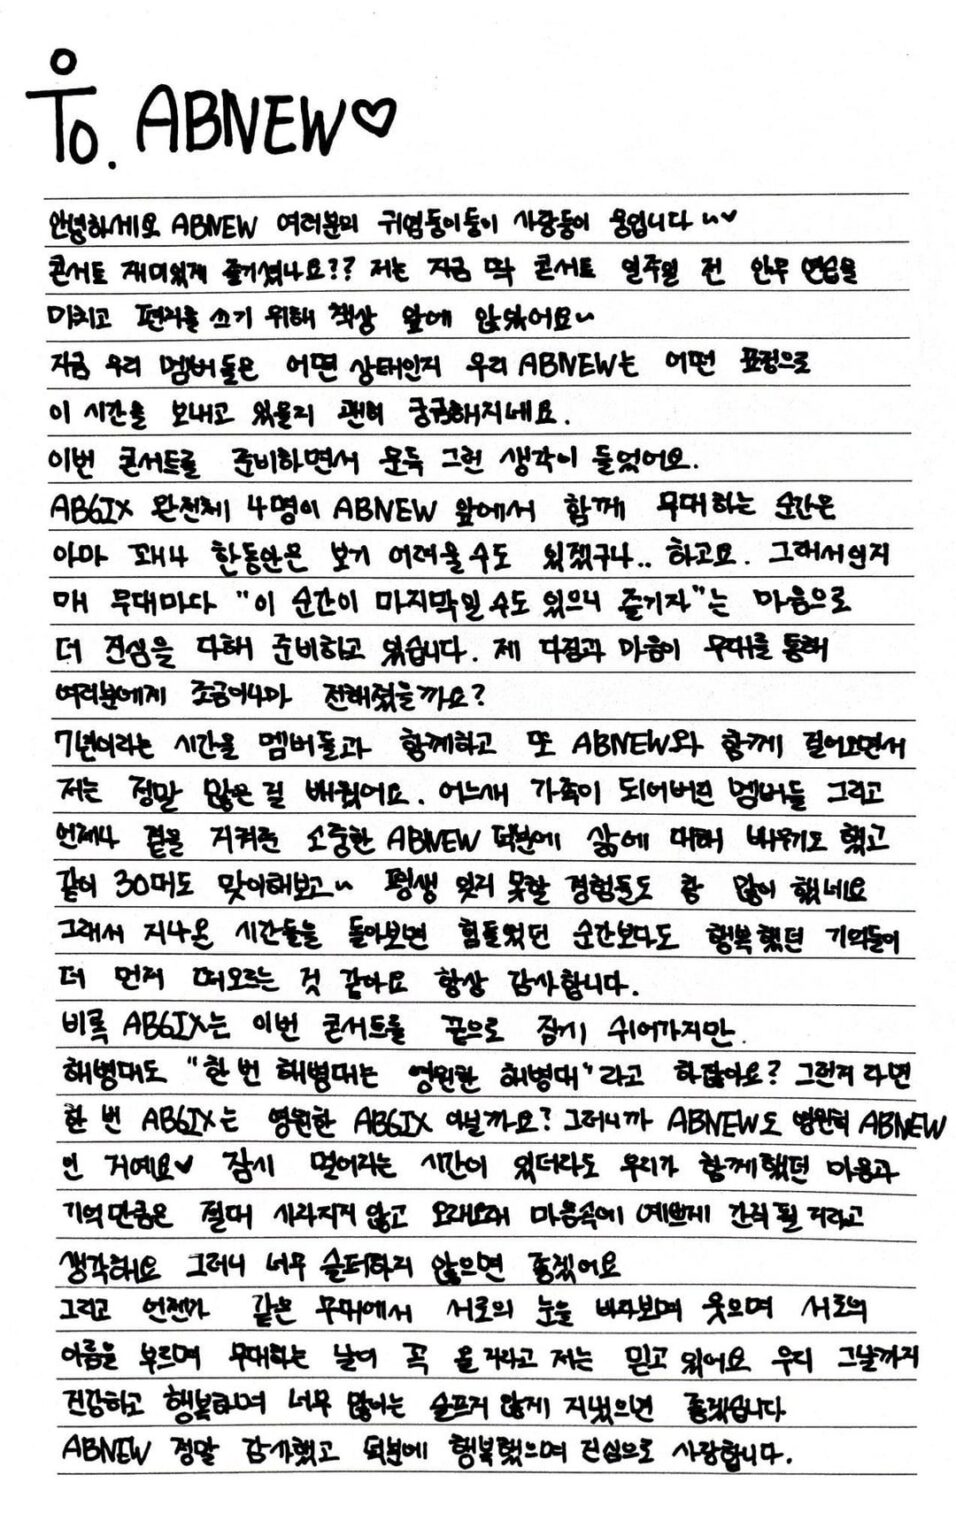 To. ABNEW♡
안녕하세요 ABNEW 여러분의 귀염둥이둥이 사랑둥이 웅입니다~♥
콘서트 재미있게 즐기셨나요?? 저는 지금 딱 콘서트 일주일 전 안무 연습을
마치고 편지를 쓰기 위해 책상 앞에 앉았어요~
지금 우리 멤버들은 어떤 상태인지 우리 ABNEW는 어떤 표정으로
이 시간을 보내고 있을지 괜히 궁금해지네요.
이번 콘서트를 준비하면서 문득 그런 생각이 들었어요.
AB6IX 완전체 4명이 ABNEW 앞에서 함께 무대하는 순간은
아마 꽤나 한동안은 보기 어려울 수도 있겠구나.. 하고요. 그래서인지
매 무대마다 "이 순간이 마지막일 수도 있으니 즐기자"는 마음으로
더 진심을 다해 준비하고 있습니다. 제 다짐과 마음이 무대를 통해
여러분에게 조금이나마 전해졌을까요?
7년이라는 시간을 멤버들과 함께하고 또 ABNEW와 함께 걸어오면서
저는 정말 많은 걸 배웠어요. 어느새 가족이 되어버린 멤버들 그리고
언제나 곁을 지켜준 소중한 ABNEW 덕분에 삶에 대해 배우기도 했고
같이 30대도 맞이해보고~ 평생 잊지 못할 경험들도 참 많이 했네요
그래서 지나온 시간들을 돌아보면 힘들었던 순간보다도 행복했던 기억들이
더 먼저 떠오르는 것 같아요 항상 감사합니다.
비록 AB6IX는 이번 콘서트를 끝으로 잠시 쉬어가지만
해병대도 "한 번 해병대는 영원한 해병대"라고 하잖아요? 그런거라면
한 번 AB6IX는 영원한 AB6IX 아닐까요? 그러니까 ABNEW도 영원히 ABNEW
인 거예요♥ 잠시 멀어지는 시간이 있더라도 우리가 함께했던 마음과
기억만큼은 절대 사라지지 않고 오래오래 마음속에 예쁘게 간직될 거라고
생각해요 그러니 너무 슬퍼하지 않으면 좋겠어요
그리고 언젠가 같은 무대에서 서로의 눈을 바라보며 웃으며 서로의
이름을 부르며 무대하는 날이 꼭 올 거라고 저는 믿고 있어요 우리 그날까지
건강하고 행복하며 너무 많이는 슬프지 않게 지냈으면 좋겠습니다
ABNEW 정말 감사했고 덕분에 행복했으며 진심으로 사랑합니다.